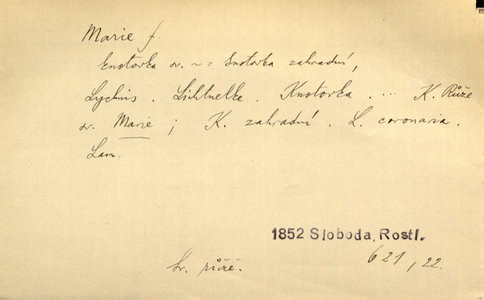 Marie f.
Knotovka sv. ~ = Knotovka zahradní,
Lychnis. Lihtnelka. Knotovka. ... K. Růže
sv. Marie ; K. zahradní. L. coronaria.
Lam.
1852 Sloboda, Rostl.
621, 22.
Sv. růže.